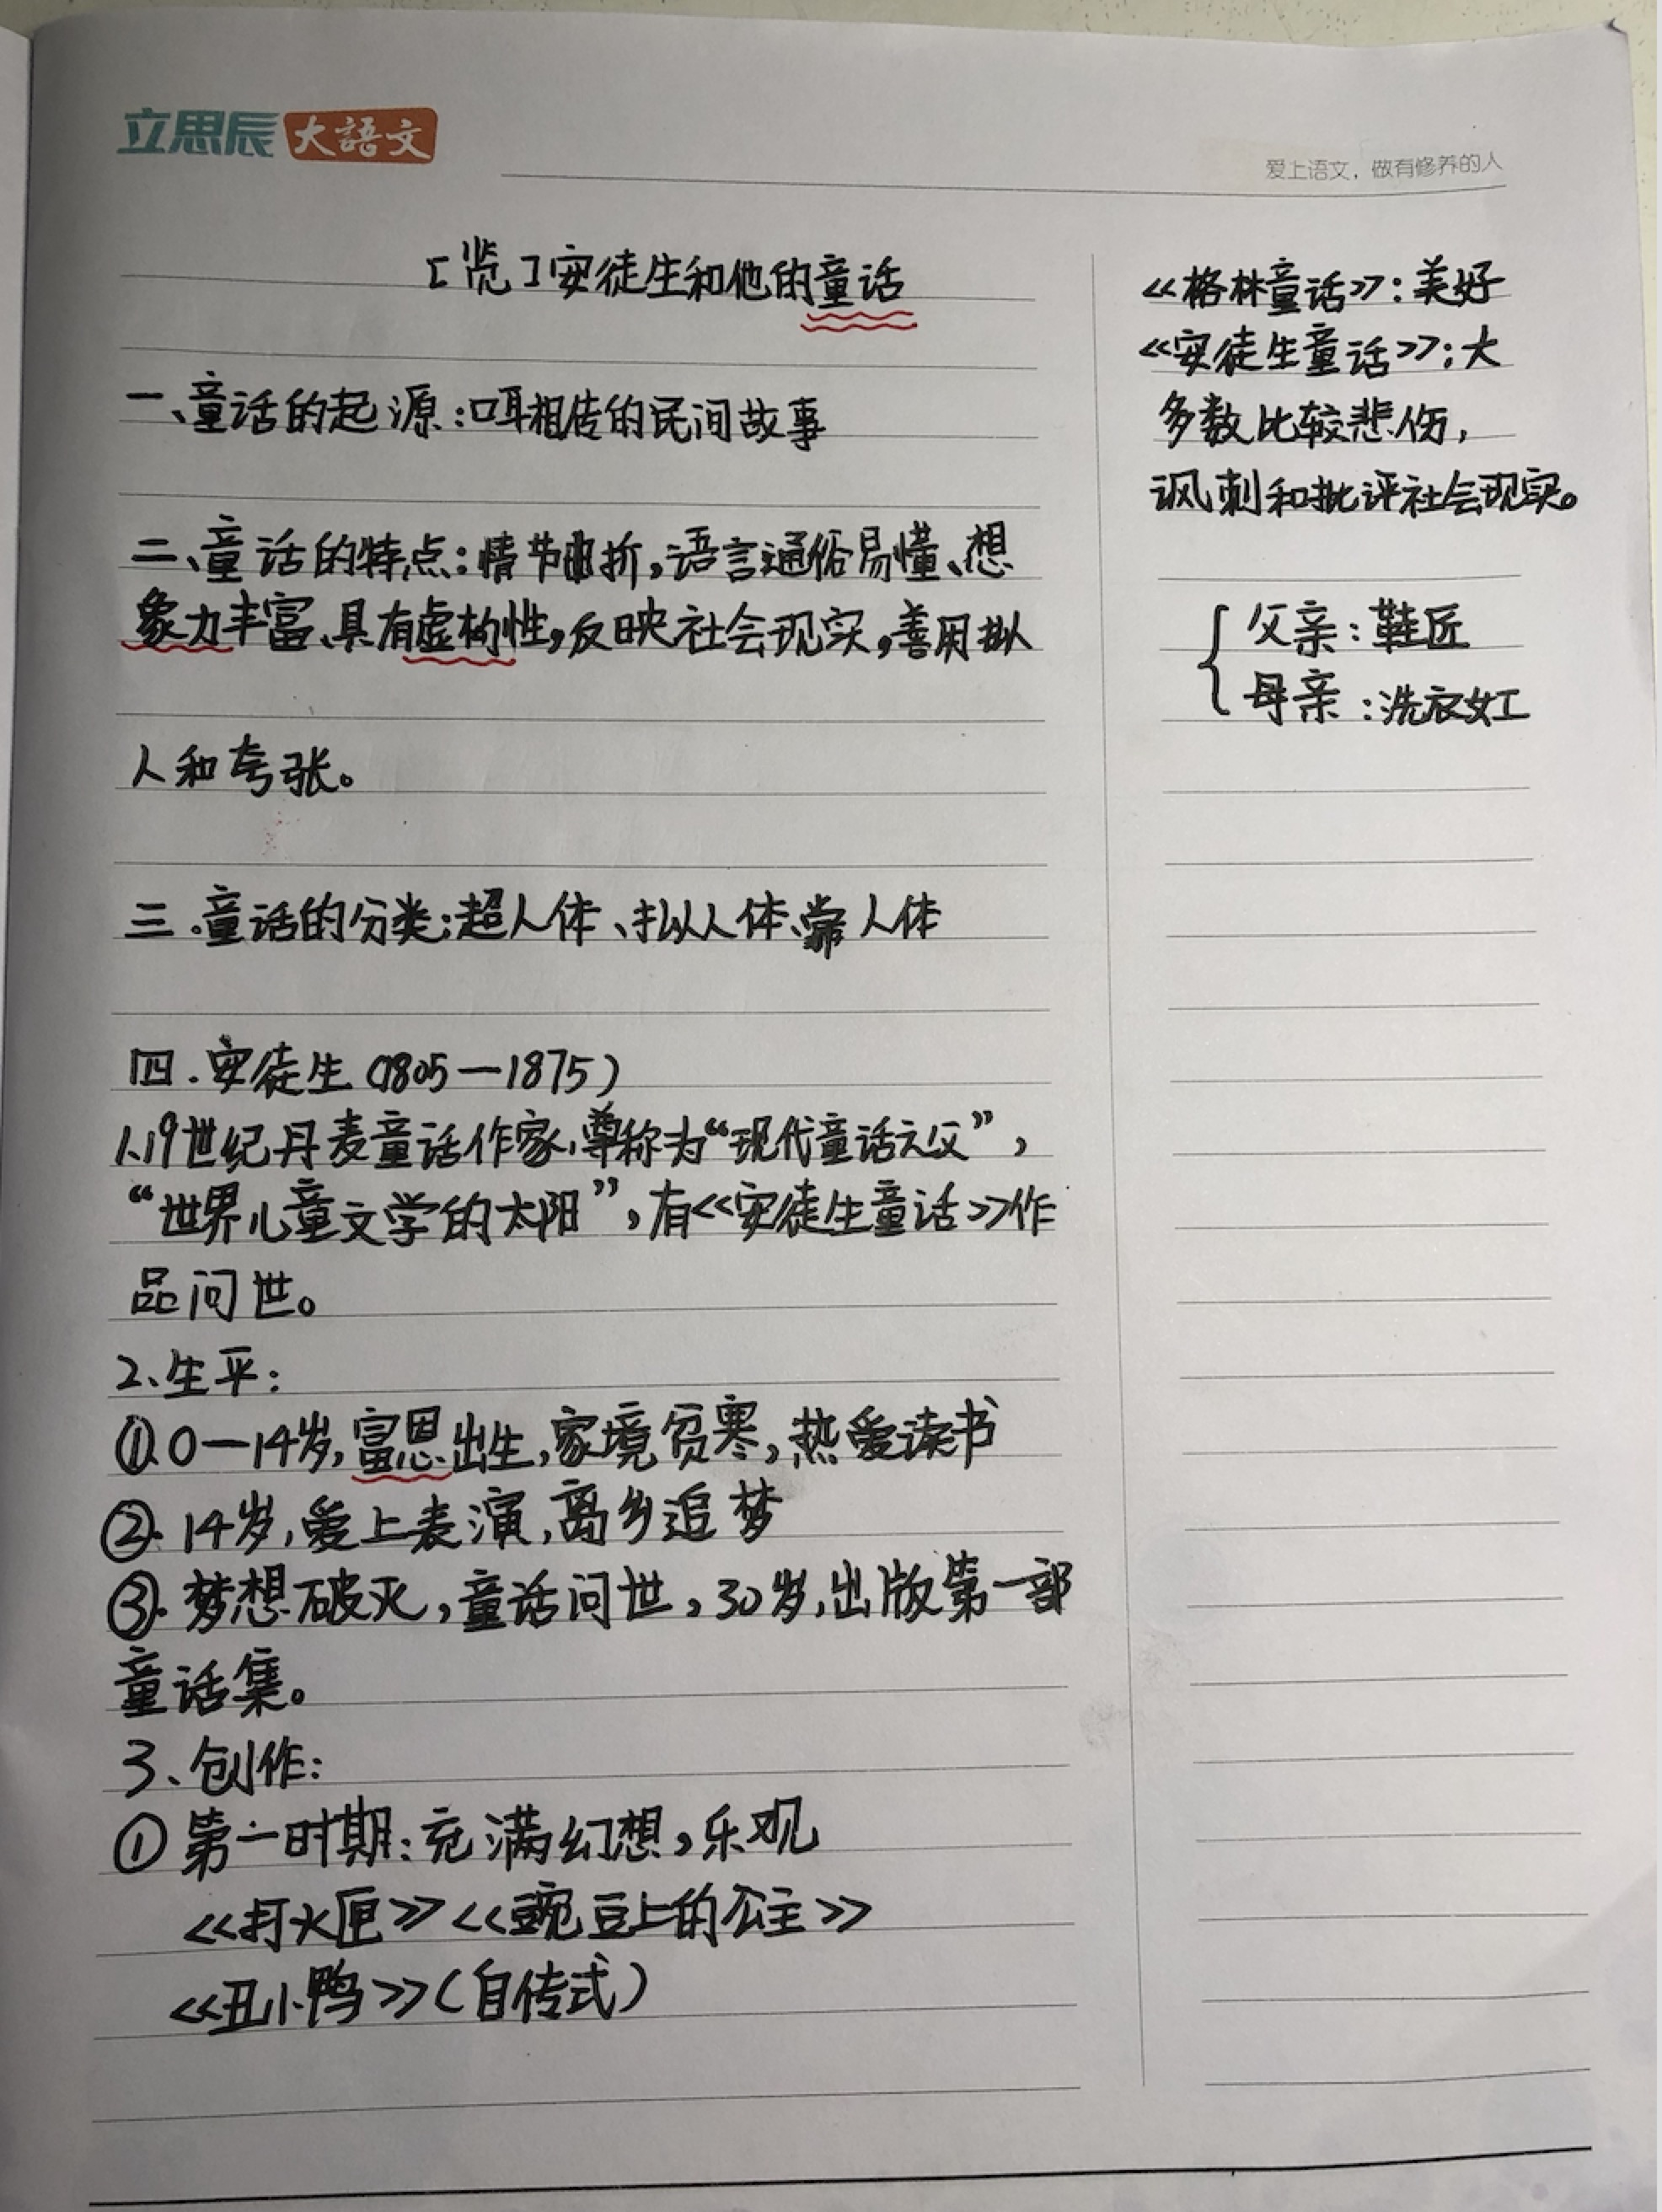 立思辰大語文
爱上语文，做有修养的人
[览]安徒生和他的童话
一、童话的起源：口耳相传的民间故事
二、童话的特点：情节曲折，语言通俗易懂、想
象力丰富、具有虚构性，反映社会现实，善用拟
人和夸张。
三.童话的分类：超人体、拟人体、常人体
四.安徒生（1805—1875）
1、19世纪丹麦童话作家，尊称为“现代童话之父”，
“世界儿童文学的太阳”，有《安徒生童话》作
品问世。
2、生平：
①、0—14岁，富恩出生，家境贫寒，热爱读书
②、14岁，爱上表演，离乡追梦
③、梦想破灭，童话问世，30岁，出版第一部
童话集。
3、创作：
①第一时期：充满幻想，乐观
《打火匣》《豌豆上的公主》
《丑小鸭》（自传式）
《格林童话》：美好
《安徒生童话》：大
多数比较悲伤，
讽刺和批评社会现实。
父亲：鞋匠
母亲：洗衣女工